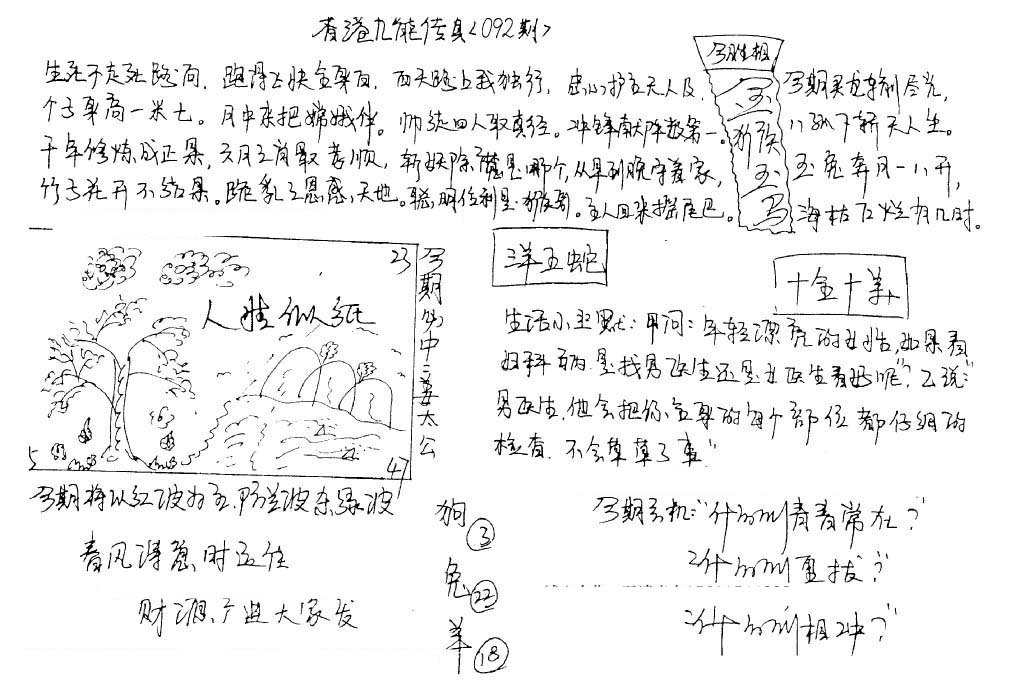 香港九龍传真<092期>
生死不走死路向．跑得上快全身白，西天路上我独行，忠心护主天人及，
个子身高一米七。月中来把嫦娥伴。师徒四人取真经。冲锋献阵数第一。
千年修炼成正果，六月之肖最老顺，斩妖除魔是哪个，从早到晚守着家，
竹子花开不结果。跪乳之恩感天地。聪明伶利是猕猴。主人回来摇尾巴。
今期
玉
猕猴
玉
马
今期
天人生。
玉兔奔月一八开，
海枯石烂有几时。
23
人生似纸
5
47
今期
中
姜太公
三羊五蛇
十全十美
生活小幽默：甲问：年轻漂亮的女性，如果看
妇科病．是找男医生还是女医生看好呢"？乙说："
男医生，他会把你全身的每个部位都仔细的
检查．不会草草了事"
今期将以红波为主．防兰波杀绿波
春风得意时运佳
财源广进大家发
狗③
兔㉒
羊⑱
今期玄机："什么叫青春常在？"
"什么叫
"什么叫相冲？"